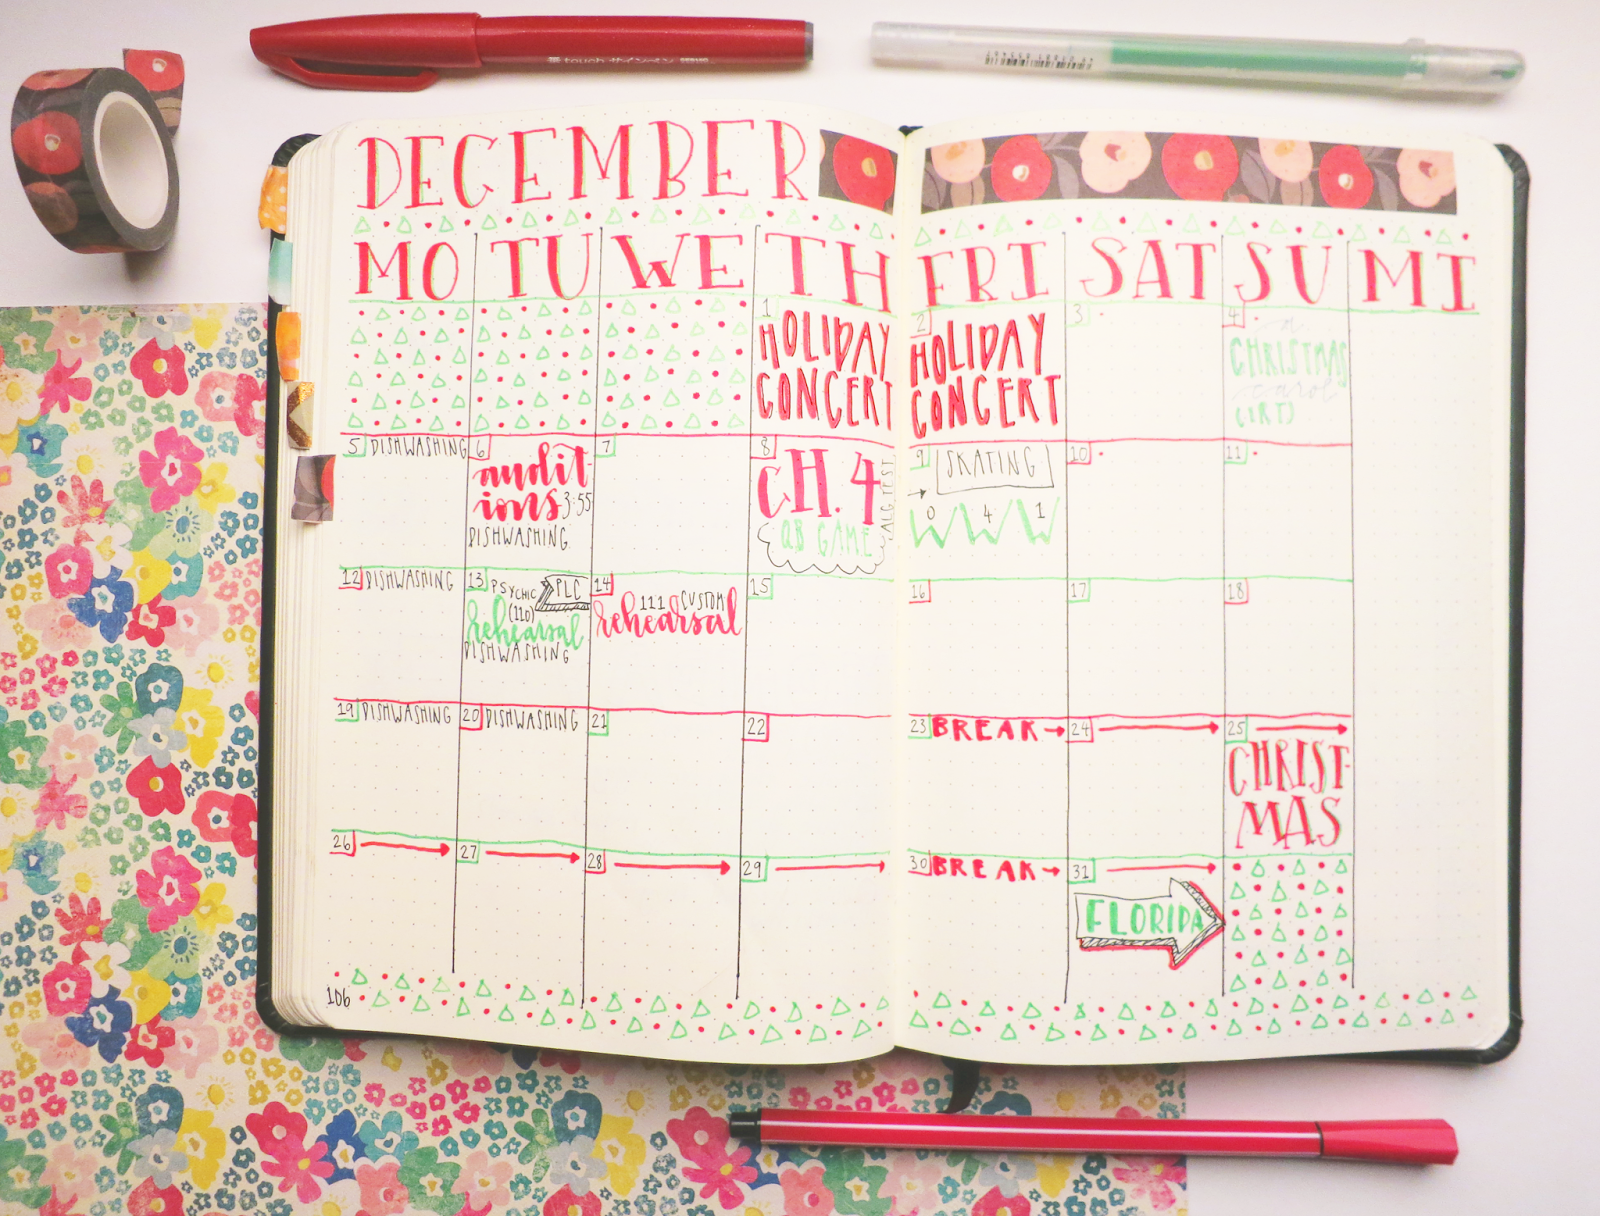 touch サインペン
DECEMBER
MO TU WE TH FRI SAT SU MI
1
HOLIDAY
CONCERT
2
HOLIDAY
CONCERT
3
4
a
CHRISTMAS
carol
(IRT)
5 DISHWASHING
6
audit-
ions 3:55
DISHWASHING
7
8
CH. 4
ALG TEST
QB GAME
9 SKATING
→ 0 4 1
W W W
10
11
12 DISHWASHING
13 PSYCHIC PLC
(110)
rehearsal
DISHWASHING
14
111 CUSTOM
rehearsal
15
16
17
18
19 DISHWASHING
20 DISHWASHING
21
22
23 BREAK →
24
25
CHRIST-
MAS
26
27
28
29
30 BREAK →
31
FLORIDA
106